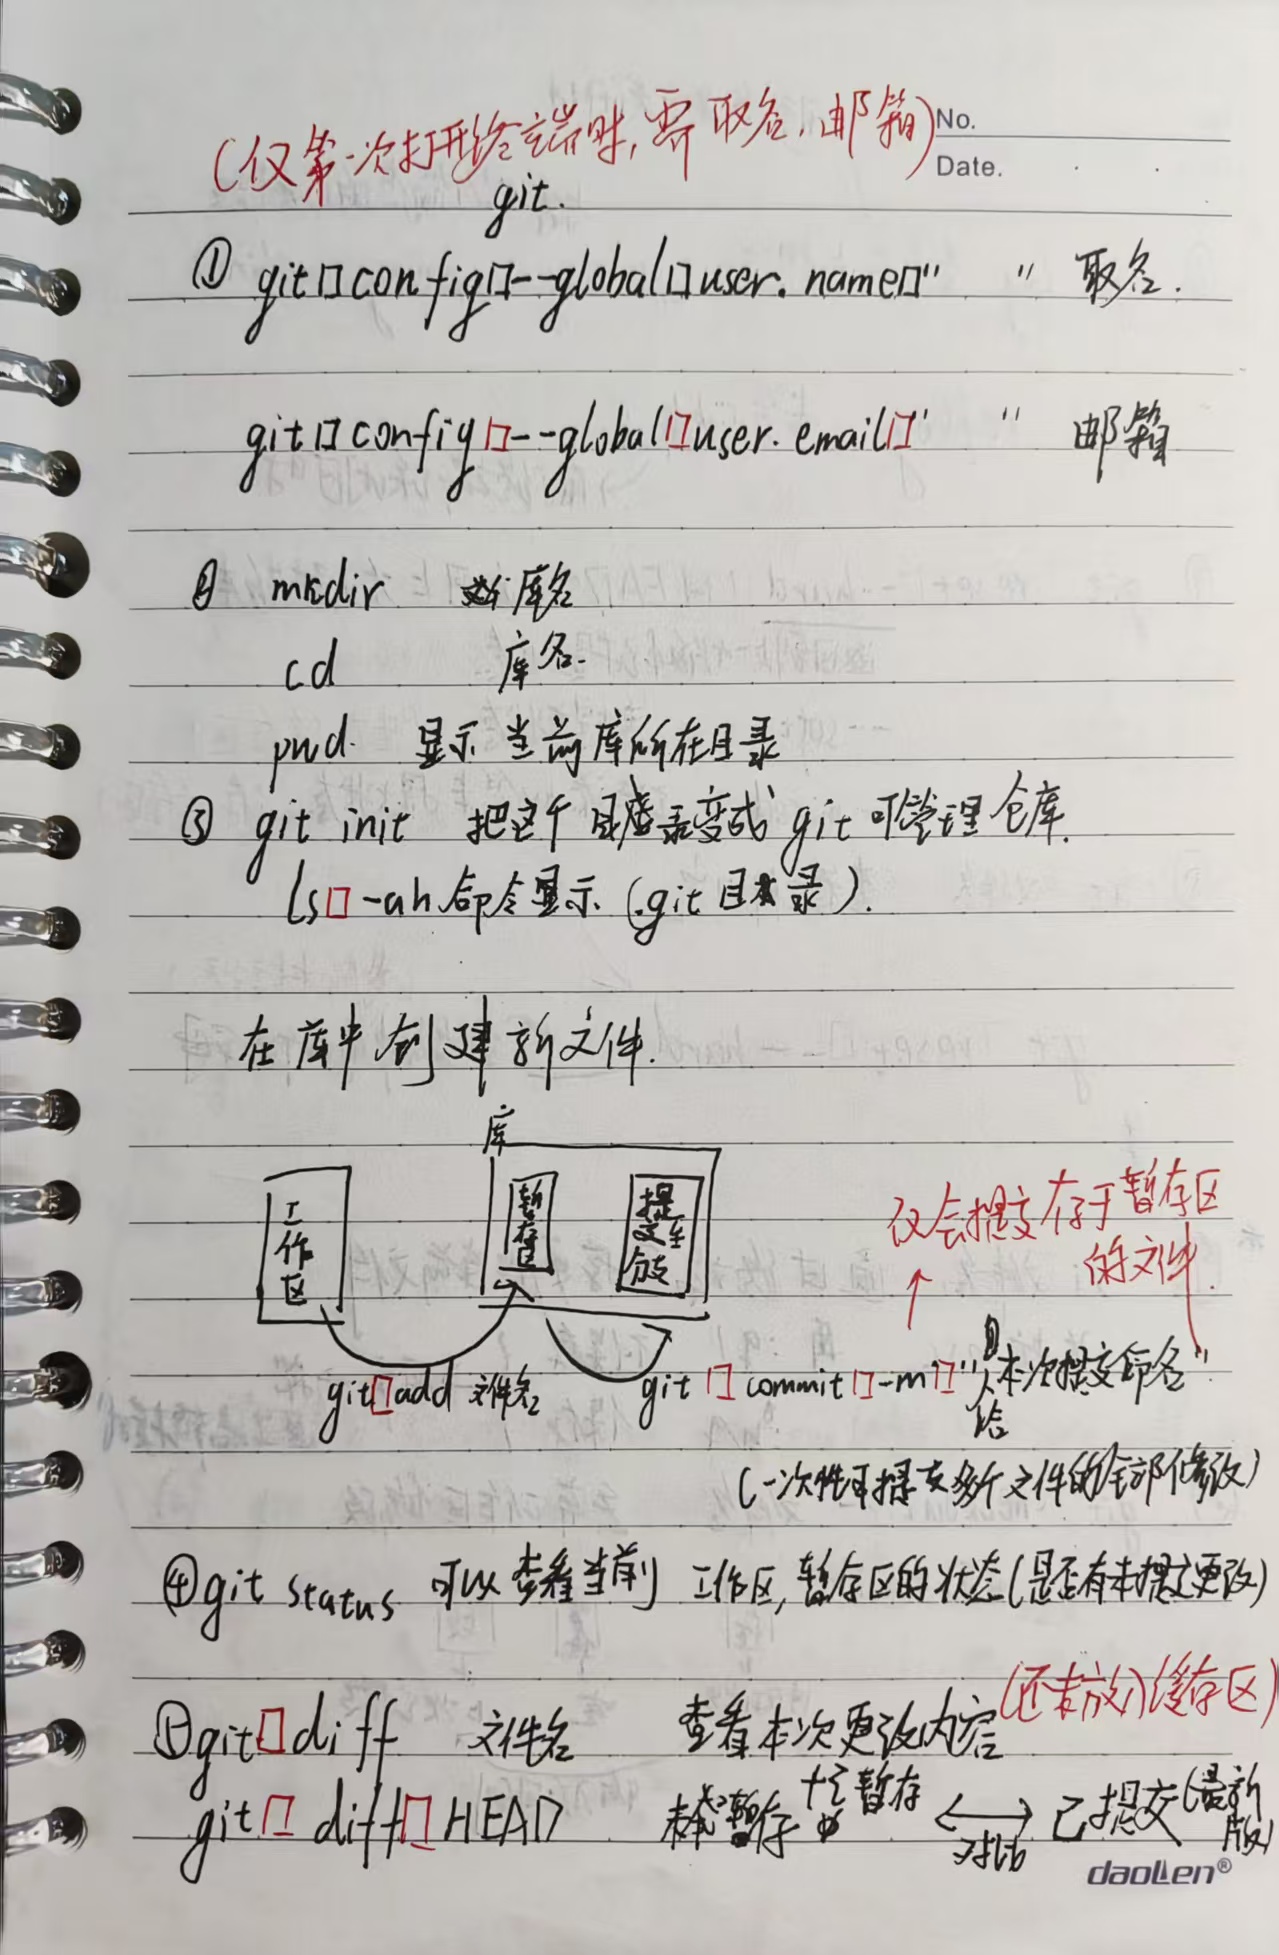 (仅第一次打开终端时,需取名,邮箱)
No.
Date.
git.
① git□config□--global□user.name□"      "  取名.
git□config□--global□user.email□"      "  邮箱
② mkdir 库名
cd 库名.
pwd. 显示当前库所在目录
③ git init 把这个目录变成git可管理仓库.
ls□-ah命令显示(.git目录).
在库中创建新文件.
库
工作区
暂存区
提交至分支
仅会提交存于暂存区
的文件.
git□add 文件名
git□commit□-m□"给本次提交命名"
(一次性可提交多个文件的全部修改)
④ git status 可以查看当前工作区,暂存区的状态(是否有未提交更改)
(还未放缓存区)
⑤ git□diff 文件名 查看本次更改内容
git□diff□HEAD 未暂存+已暂存 ⟷ 已提交(最新版)
对比
daolen®